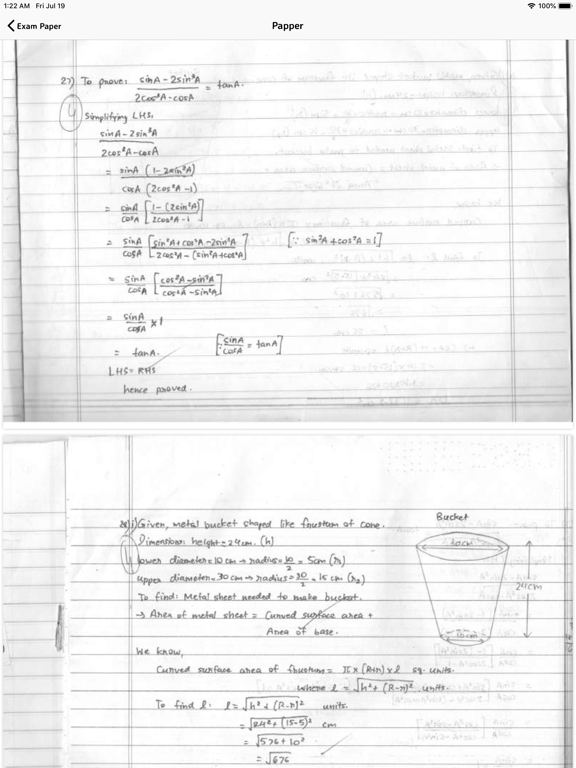 1:22 AM Fri Jul 19
100%
Exam Paper
Papper
27) To prove: sinA - 2sin³A / 2cos³A - cosA = tanA.
4
Simplifying LHS,
sinA - 2sin³A / 2cos³A - cosA
= sinA (1 - 2sin²A) / cosA (2cos²A - 1)
= sinA/cosA [1 - (2sin²A) / 2cos²A - 1]
= sinA/cosA [sin²A + cos²A - 2sin²A / 2cos²A - (sin²A + cos²A)] [∵ sin²A + cos²A = 1]
= sinA/cosA [cos²A - sin²A / cos²A - sin²A]
= sinA/cosA × 1
= tanA. [∵ sinA/cosA = tanA]
LHS = RHS
hence proved.
28)i) Given, metal bucket shaped like frustum of cone.
Dimensions: height = 24cm. (h)
lower diameter = 10 cm → radius = 10/2 = 5cm (r₁)
upper diameter = 30 cm → radius = 30/2 = 15 cm (r₂)
To find: Metal sheet needed to make bucket.
→ Area of metal sheet = Curved surface area +
Area of base.
Bucket
30cm
24cm
10cm
We know,
Curved surface area of frustum = π × (R+r) × l sq. units.
where l = √h² + (R-r)² units.
To find l: l = √h² + (R-r)² units.
= √24² + (15-5)² cm
= √576 + 10²
= √676